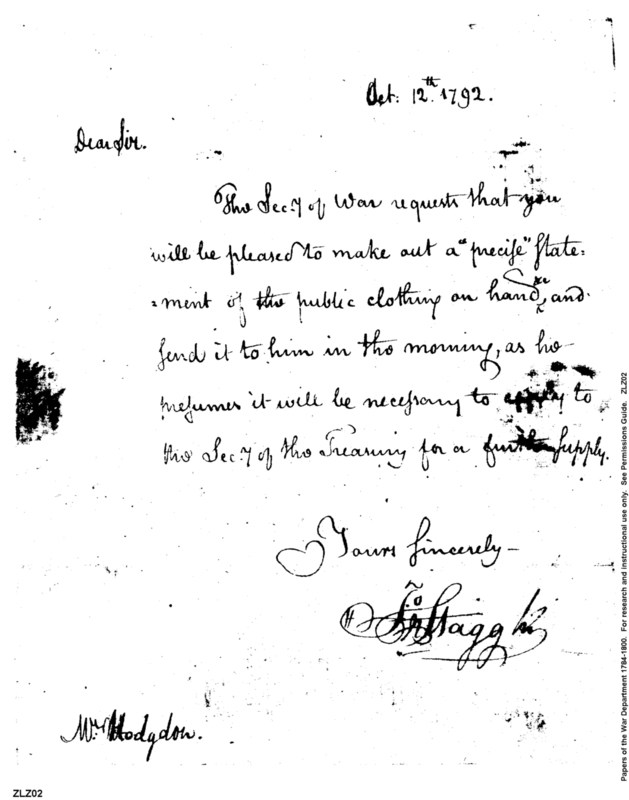 Oct: 12th. 1792.
Dear Sir.
The Secy of War requests that you
will be pleased to make out a "precise" State:
:ment of the public clothing on hand, and
send it to him in the morning, as he
presumes it will be necessary to apply to
the Secy of the Treasury for a further supply.
Yours sincerely –
Jno Stagg Jr
Mr Hodgdon.
ZLZ02
Papers of the War Department 1784-1800. For research and instructional use only. See Permissions Guide. ZLZ02